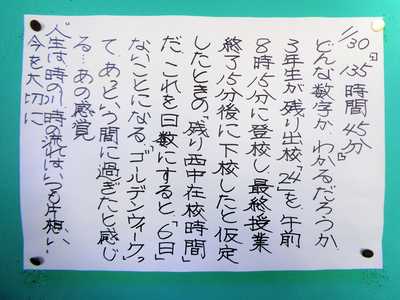 11/30 『135時間45分』
どんな数字か、わかるだろうか。
3年生が残り出校「24」を、午前
8時15分に登校し、最終授業
終了15分後に下校したと仮定
したときの「残り西中在校時間」
だ。これを日数にすると、「6日」
ないことになる。「ゴールデンウィーク」っ
て、あっという間に過ぎたと感じ
る…あの感覚
“人生は時の川、時の流れはいつも片想い、
今を大切に